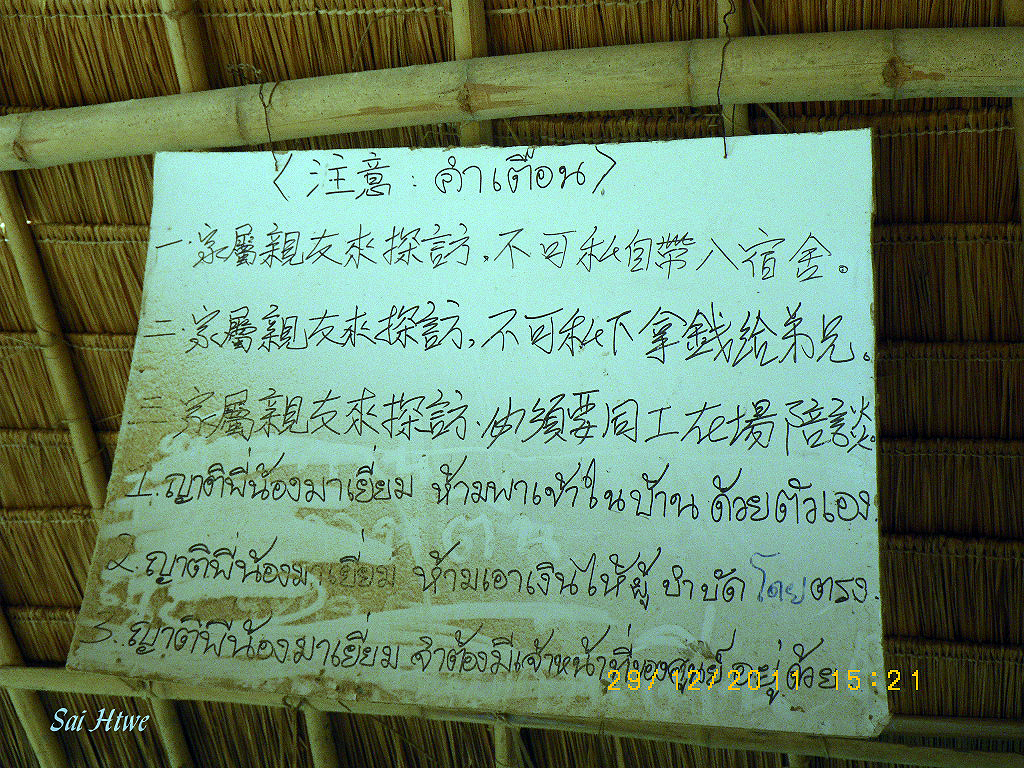 〈注意：คำเตือน〉
一.家屬親友來探訪,不可私自帶入宿舍。
二.家屬親友來探訪,不可私下拿錢給弟兄。
三.家屬親友來探訪.必須要同工在場陪談。
1.ญาติพี่น้องมาเยี่ยม ห้ามพาเข้าในบ้าน ด้วยตัวเอง.
2.ญาติพี่น้องมาเยี่ยม ห้ามเอาเงินให้ผู้ บำบัด โดยตรง.
3.ญาติพี่น้องมาเยี่ยม จำต้องมีเจ้าหน้าที่ของศูนย์ อยู่ด้วย
29/12/2011 15:21
Sai Htwe